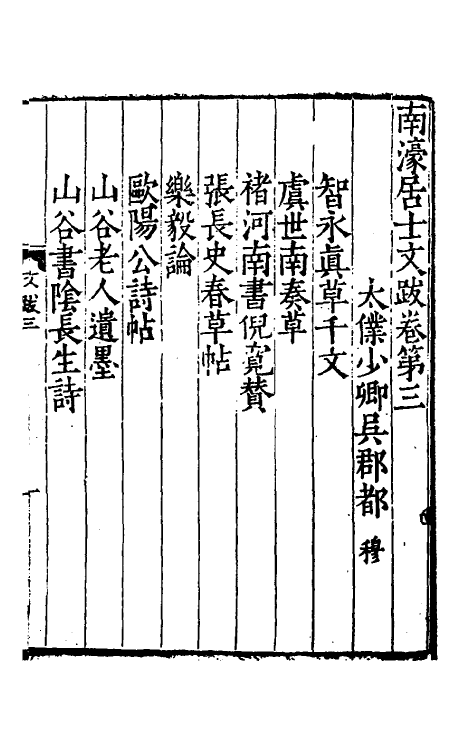 南濠居士文跋卷第三
太僕少卿吳郡都 穆
智永眞草千文
虞世南奏草
褚河南書倪寬贊
張長史春草帖
樂毅論
歐陽公詩帖
山谷老人遺墨
山谷書陰長生詩
文跋三
一